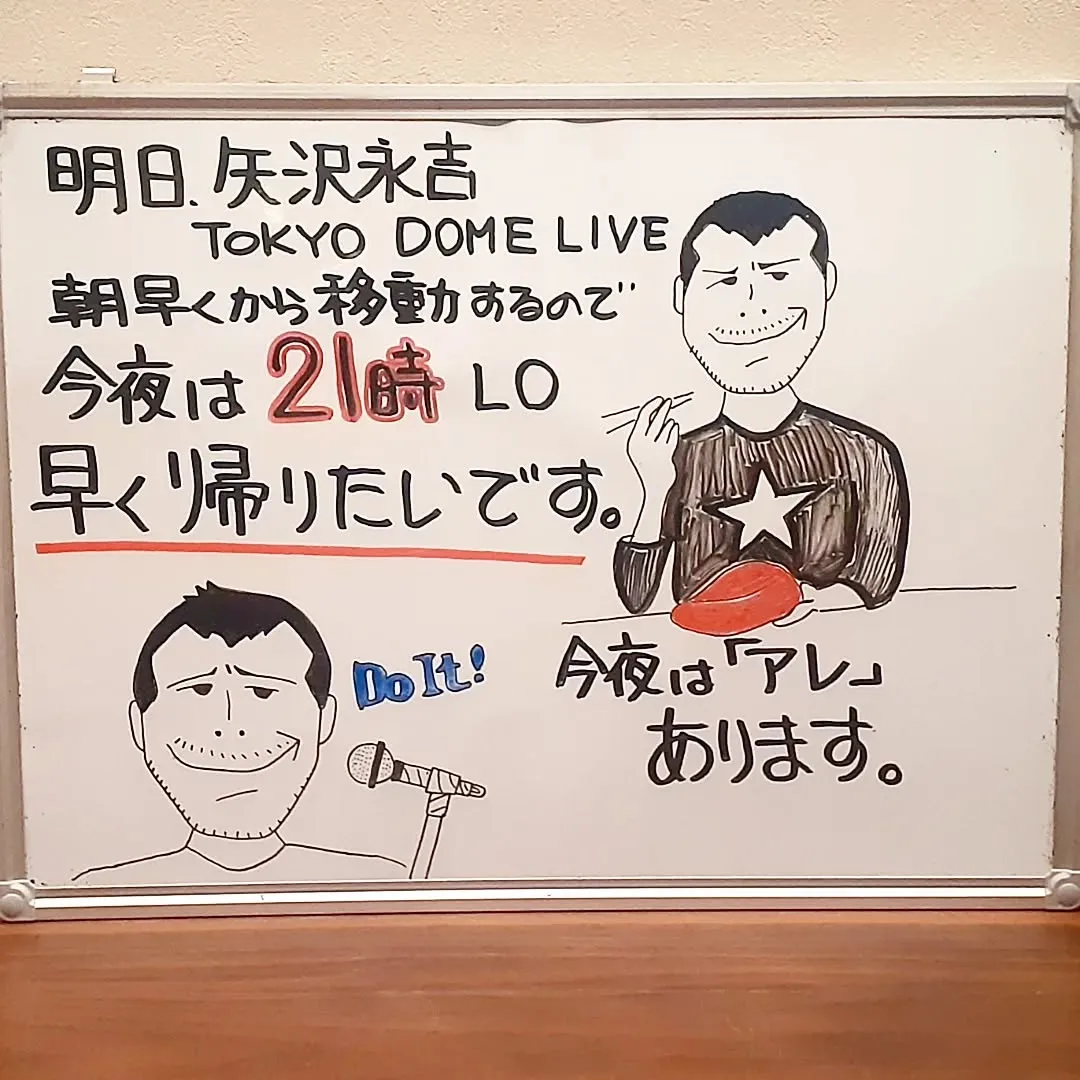 明日、矢沢永吉
TOKYO DOME LIVE
朝早くから移動するので
今夜は21時 LO
早く帰りたいです。
Do It!
今夜は「アレ」
あります。